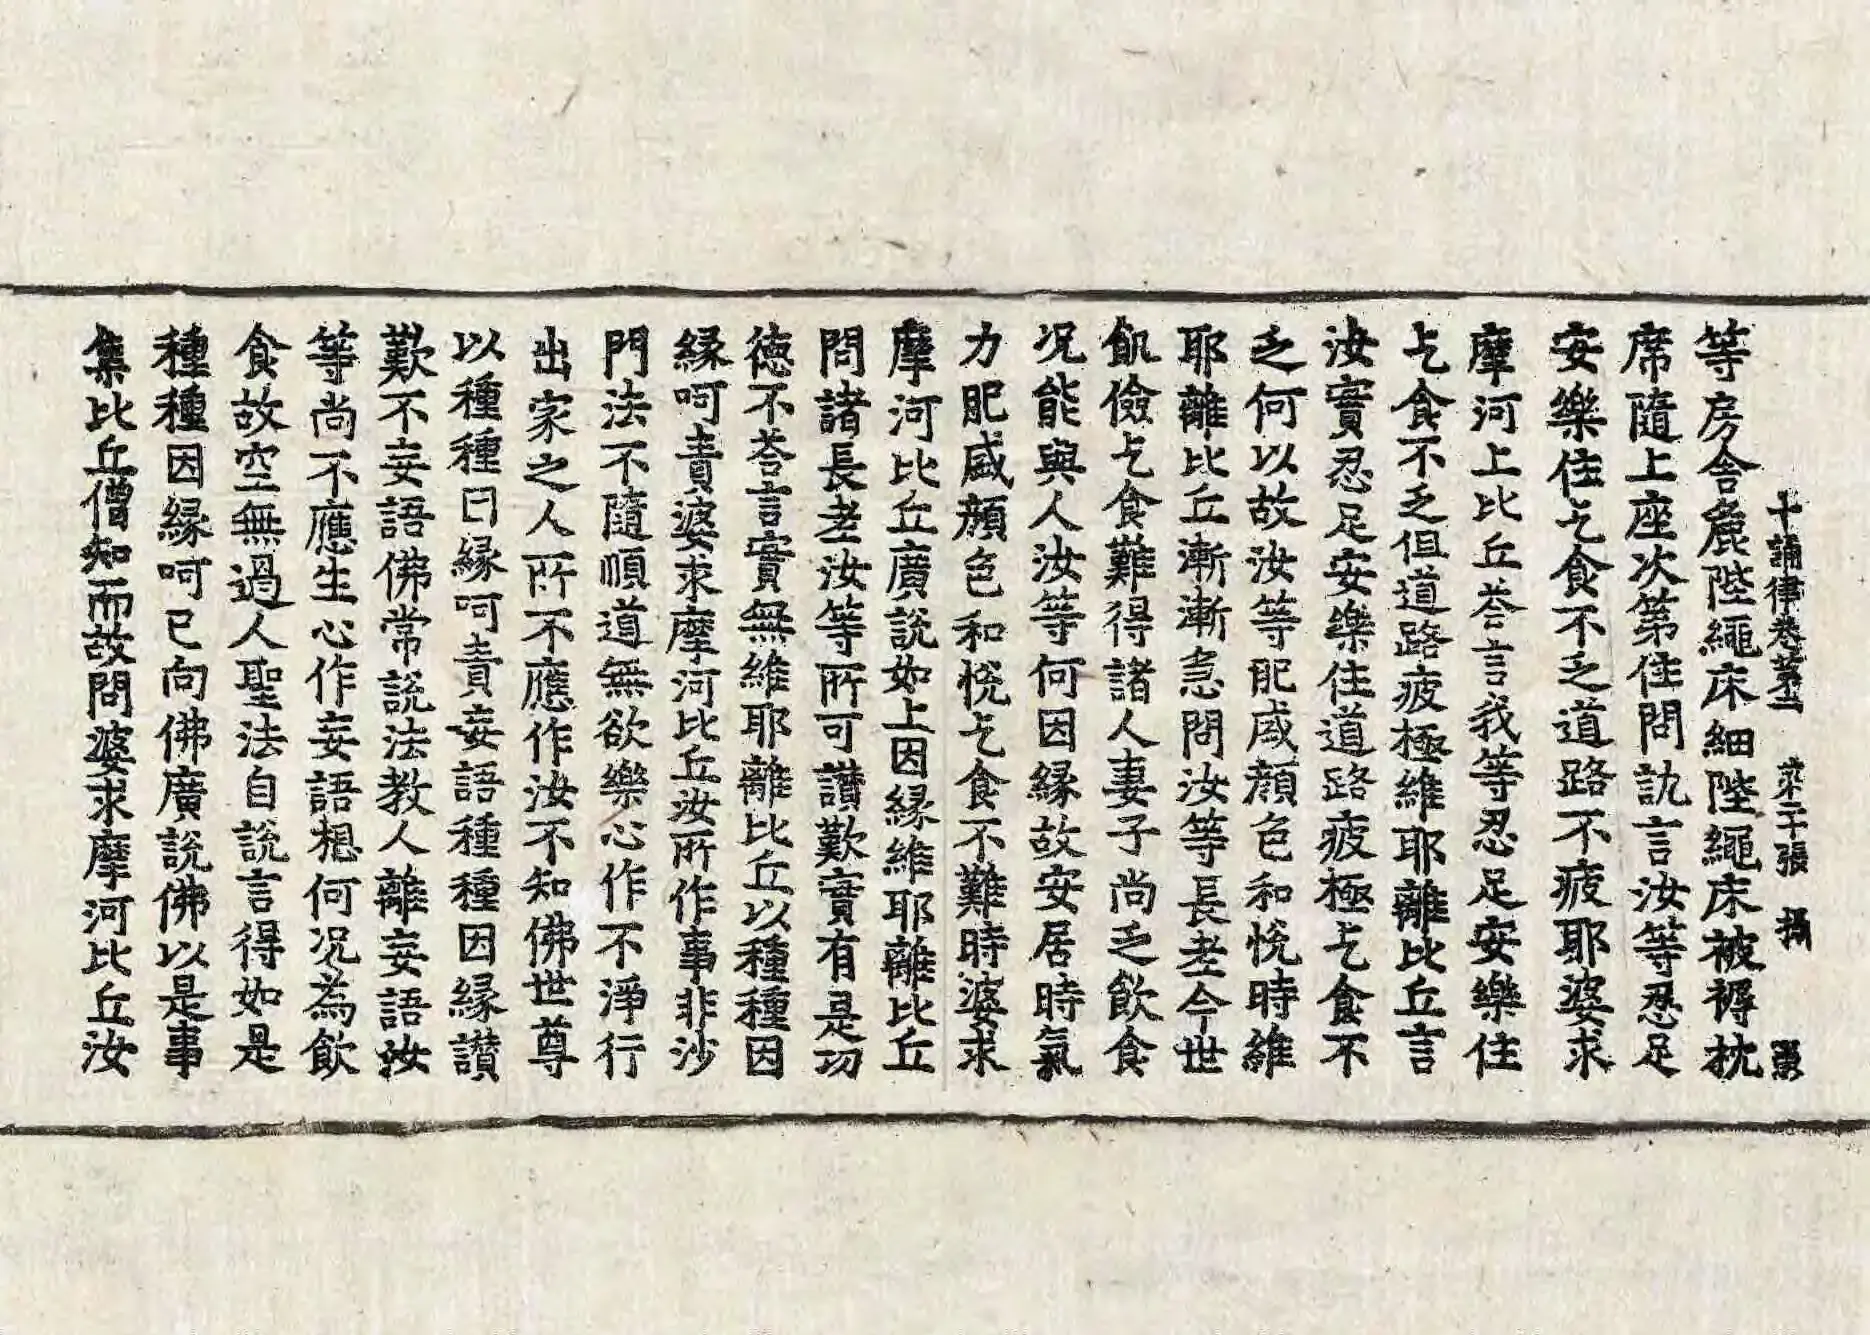 十誦律卷第二 第二十張 攝
等房舍麁陛繩床細陛繩床被褥枕
席隨上座次第住問訊言汝等忍足
安樂住乞食不乏道路不疲耶婆求
摩河上比丘荅言我等忍足安樂住
乞食不乏但道路疲極維耶離比丘言
汝實忍足安樂住道路疲極乞食不
乏何以故汝等肥盛顏色和悅時維
耶離比丘漸漸急問汝等長老今世
飢儉乞食難得諸人妻子尚乏飲食
况能與人汝等何因緣故安居時氣
力肥盛顏色和悅乞食不難時婆求
摩河比丘廣說如上因緣維耶離比丘
問諸長老汝等所可讚歎實有是功
德不荅言實無維耶離比丘以種種因
緣呵責婆求摩河比丘汝所作事非沙
門法不隨順道無欲樂心作不淨行
出家之人所不應作汝不知佛世尊
以種種因緣呵責妄語種種因緣讚
歎不妄語佛常說法教人離妄語汝
等尚不應生心作妄語想何况為飲
食故空無過人聖法自說言得如是
種種因緣呵已向佛廣說佛以是事
集比丘僧知而故問婆求摩河比丘汝